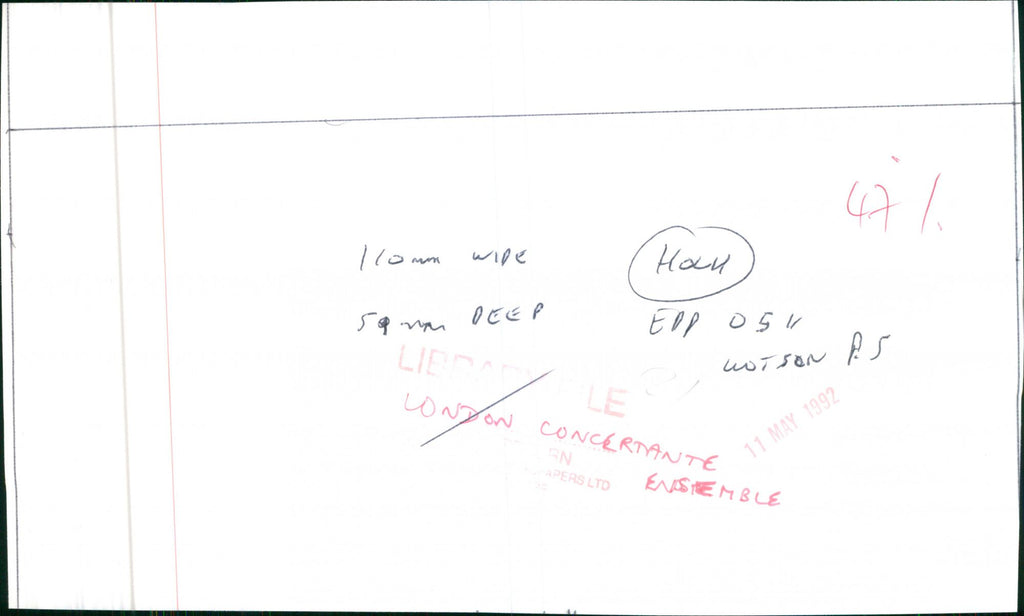 47 %
110mm WIDE
59mm DEEP
EPP 0511
P.5
LIBRARY FILE
LONDON CONCERTANTE
ENSEMBLE
11 MAY 1992
APERS LTD